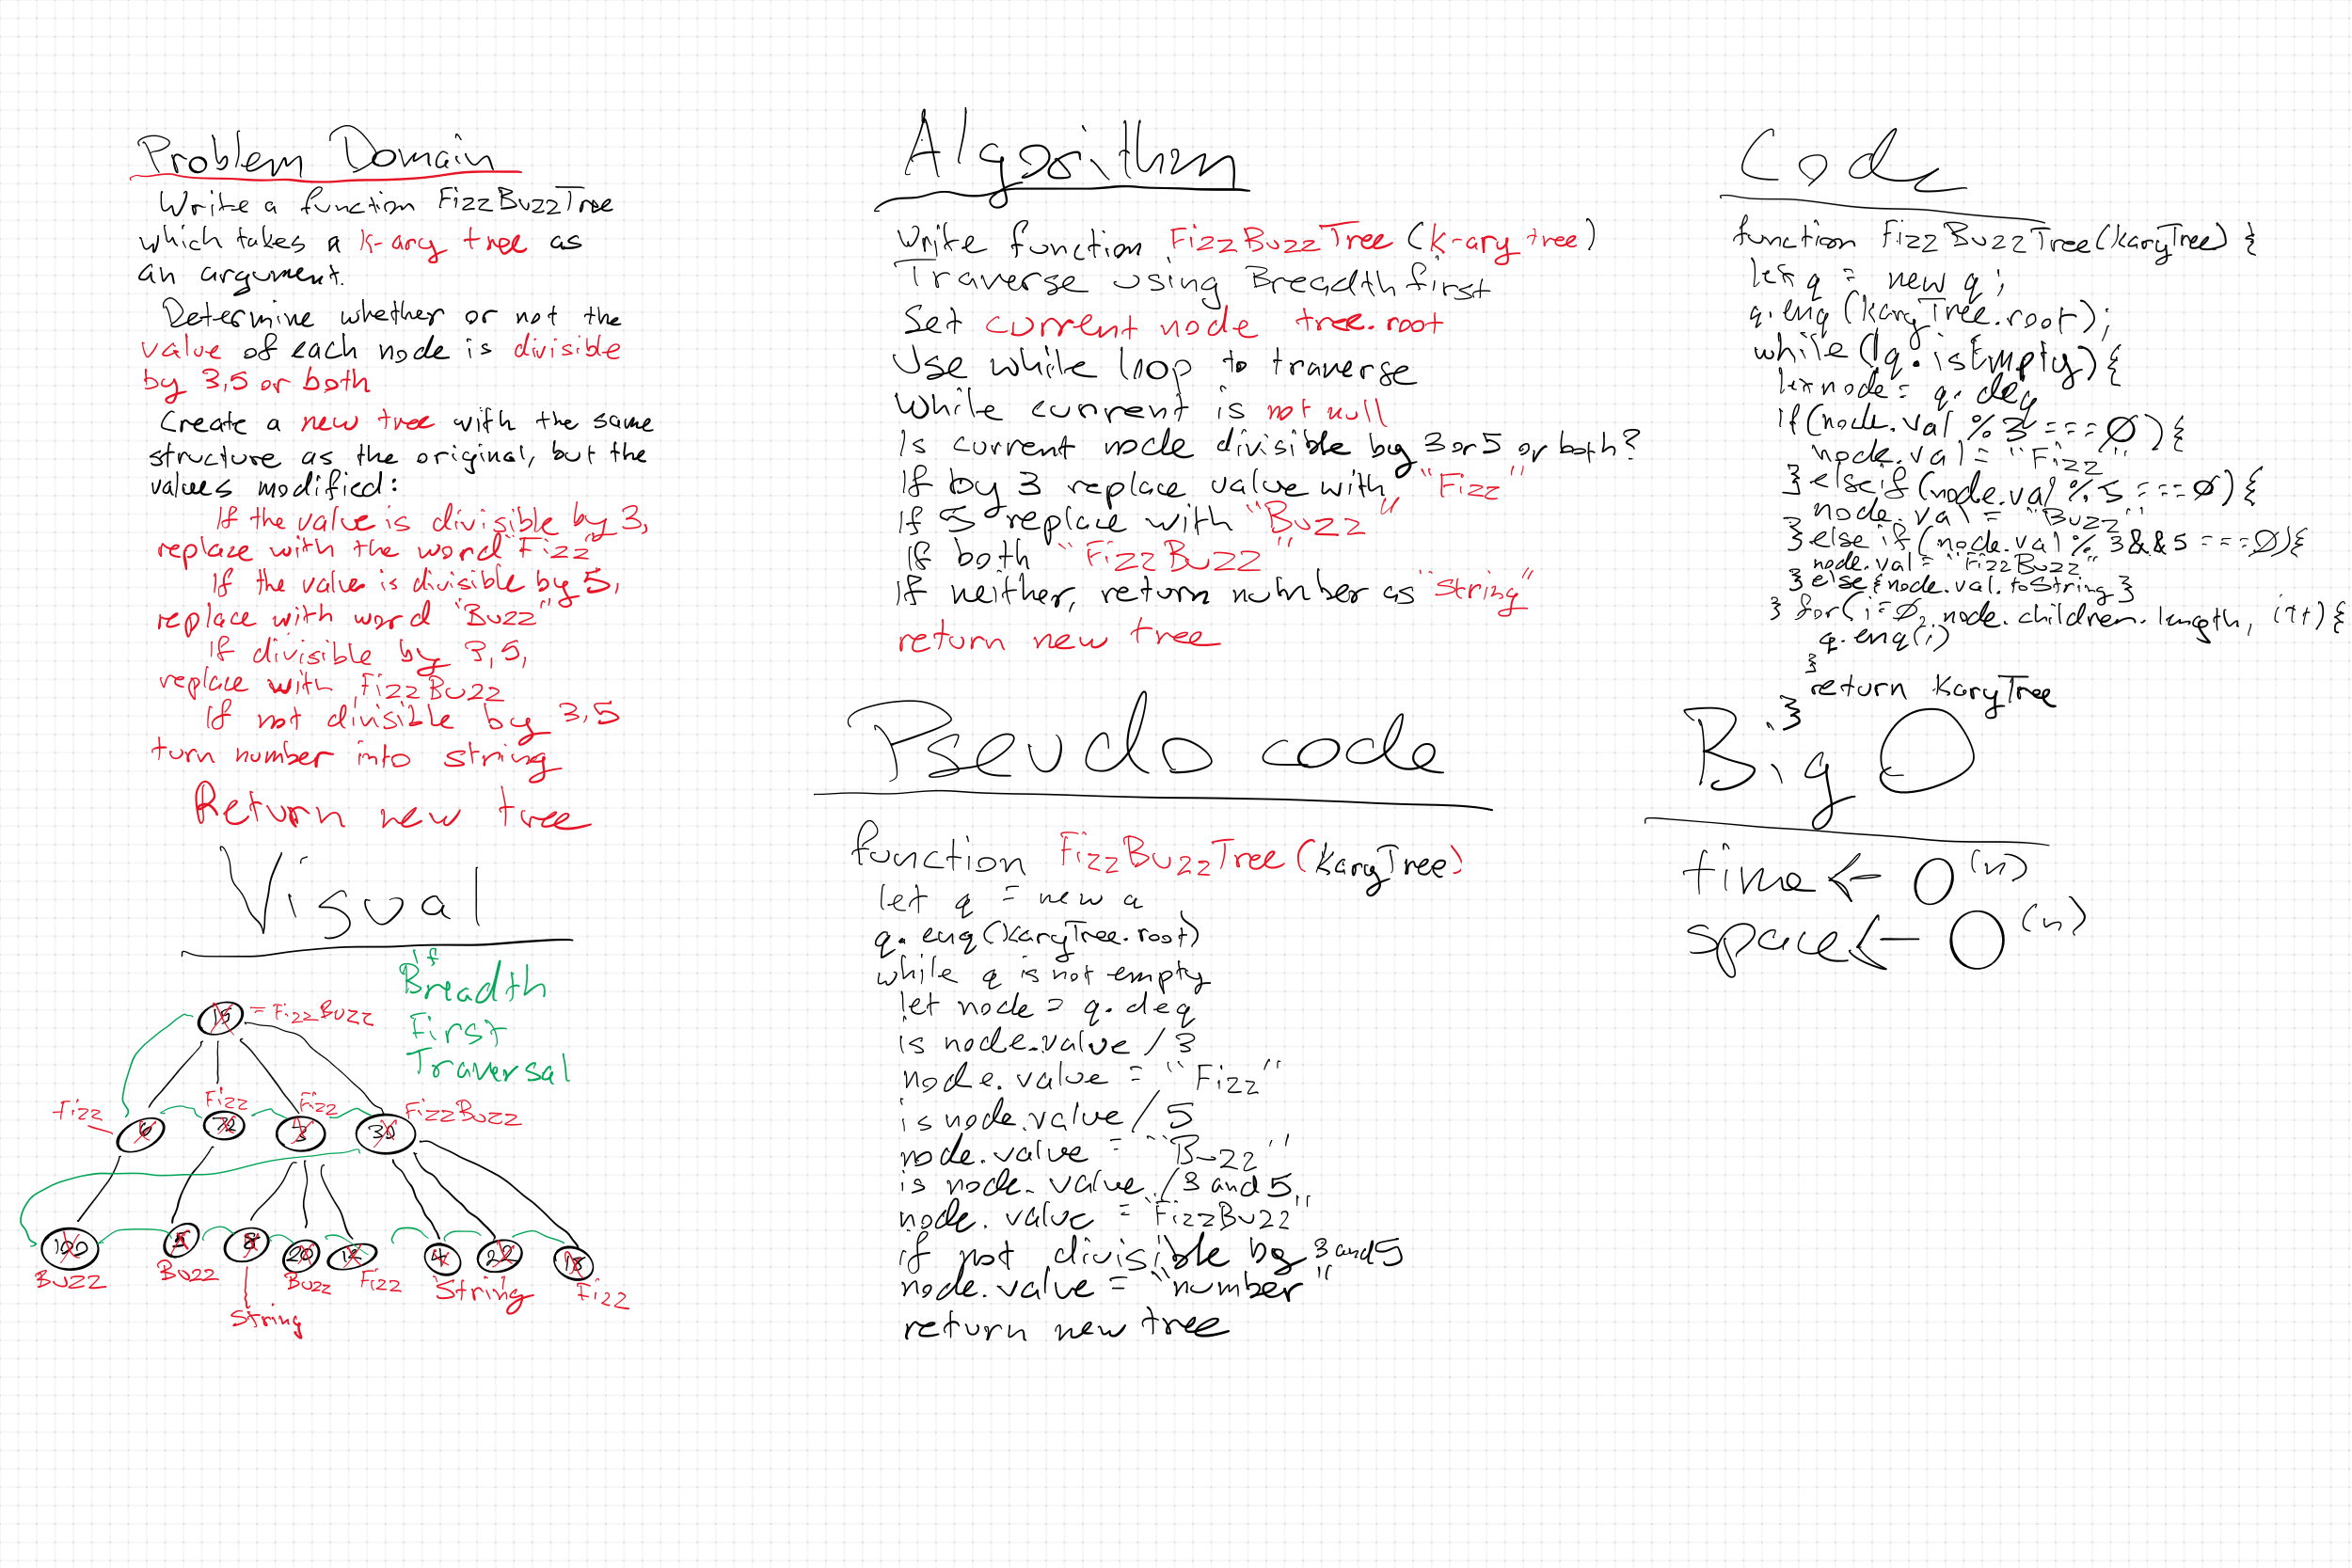 Problem Domain
Write a function FizzBuzzTree
which takes a K-ary tree as
an argument.
Determine whether or not the
value of each node is divisible
by 3,5 or both
Create a new tree with the same
structure as the original, but the
values modified:
If the value is divisible by 3,
replace with the word "Fizz"
If the value is divisible by 5,
replace with word "Buzz"
If divisible by 3,5,
replace with FizzBuzz
If not divisible by 3,5
turn number into string
Return new tree
Visual
If
Breadth
First
Traversal
15 = FizzBuzz
Fizz Fizz Fizz FizzBuzz
6 3 30
100 5 8 20 12 4 22 18
Buzz Buzz Buzz Fizz String Fizz
String
Algorithm
Write function FizzBuzzTree (K-ary tree)
Traverse using Breadth first
Set current node tree.root
Use while loop to traverse
While current is not null
Is current node divisible by 3 or 5 or both?
If by 3 replace value with "Fizz"
If 5 replace with "Buzz"
If both "FizzBuzz"
If neither, return number as "string"
return new tree
Pseudo code
function FizzBuzzTree (KaryTree)
let q = new q
q. enq (KaryTree.root)
while q is not empty
let node = q. deq
is node.value / 3
node.value = "Fizz"
is node.value / 5
node.value = "Buzz"
is node.value / 3 and 5
node.value = "FizzBuzz"
if not divisible by 3 and 5
node.value = "number"
return new tree
Code
function FizzBuzzTree (KaryTree) {
let q = new q;
q. enq (KaryTree.root);
while (!q.isEmpty) {
let node = q. deq
if (node.val % 3 === 0) {
node.val = "Fizz"
} else if (node.val % 5 === 0) {
node.val = "Buzz"
} else if (node.val % 3 && 5 === 0) {
node.val = "FizzBuzz"
} else { node.val.toString }
} for (i=0, node.children.length, i++) {
q.enq(i)
}
return KaryTree
}
Big O
time ← O(n)
space ← O(n)